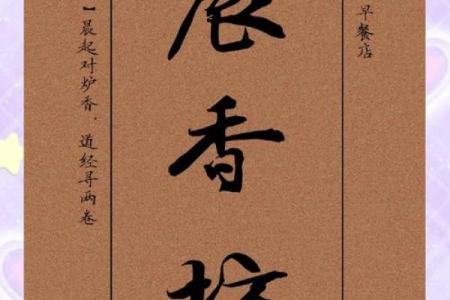 早餐店
晨香
】晨起对炉香，道经寻两卷